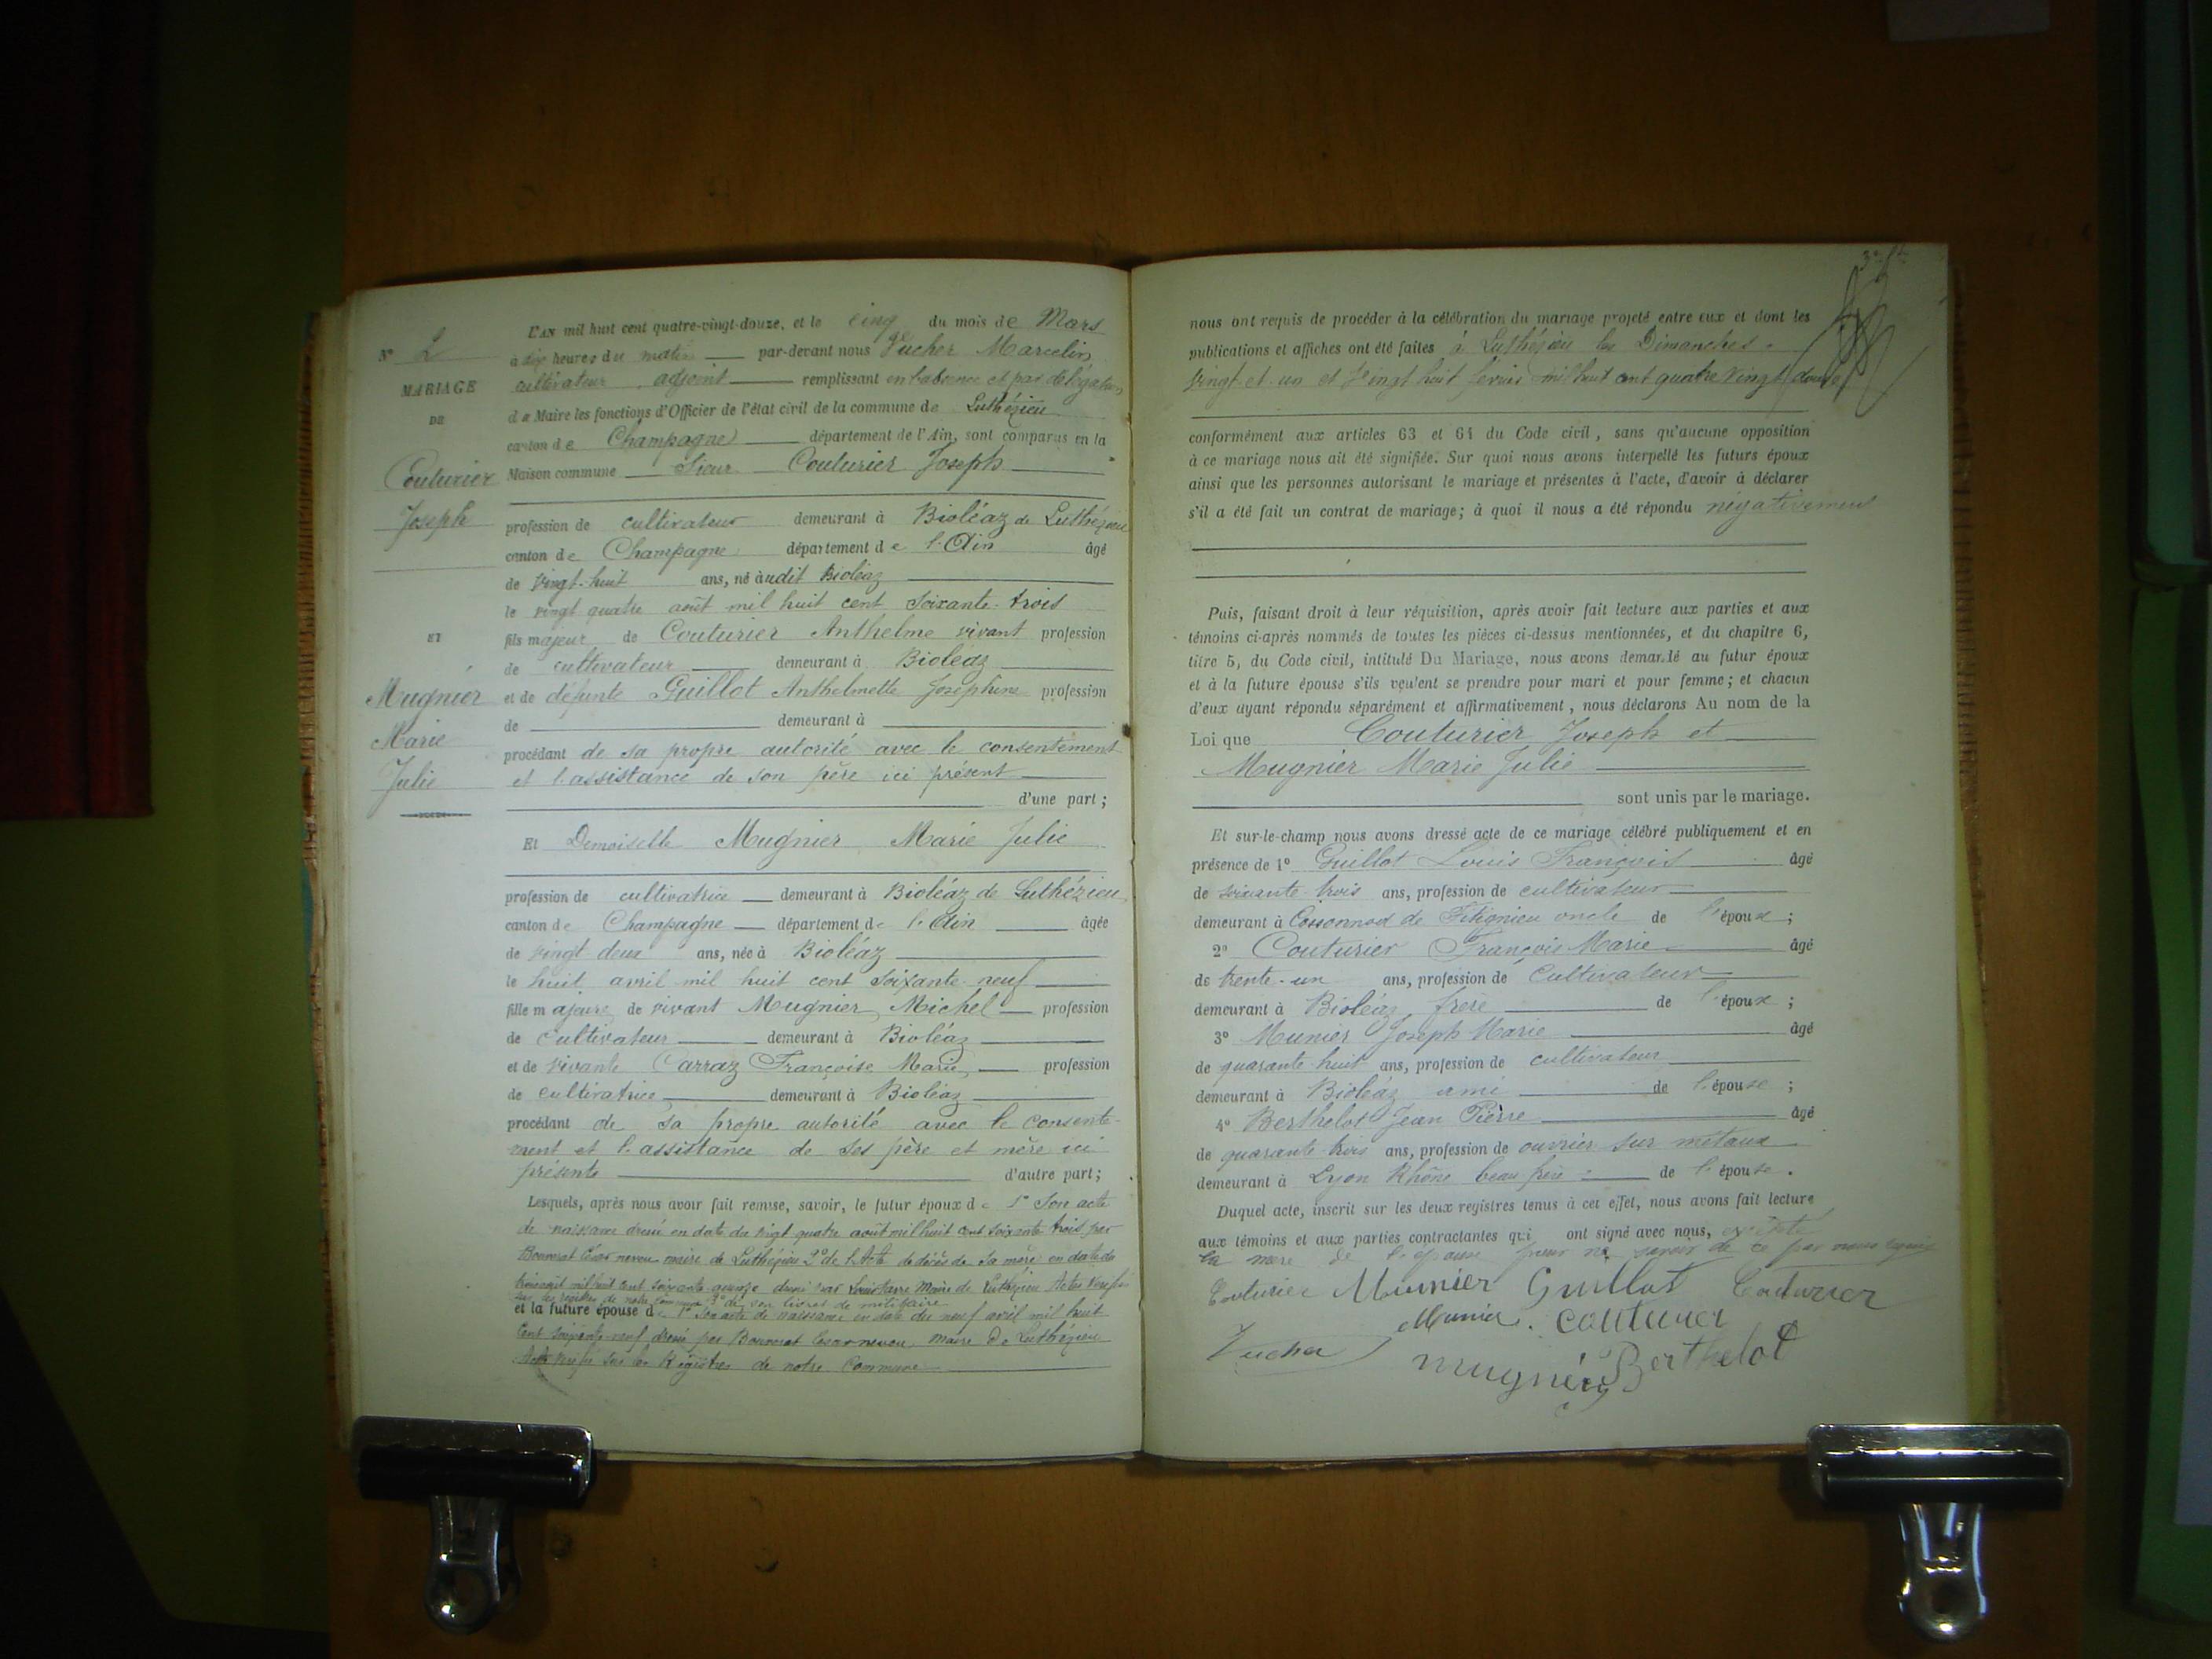 N° 2
MARIAGE
DE
Couturier
Joseph
ET
Mugnier
Marie
Julie
L'AN mil huit cent quatre-vingt-douze, et le cinq du mois de Mars
à dix heures du matin par-devant nous Vucher Marcelin
cultivateur adjoint remplissant en l'absence et par délégation
de Maire les fonctions d'Officier de l'état civil de la commune de Luthézieu
canton de Champagne département de l'Ain, sont comparus en la
Maison commune Sieur Couturier Joseph
profession de cultivateur demeurant à Bioléaz de Luthézieu
canton de Champagne département de l'Ain âgé
de vingt-huit ans, né audit Bioléaz
le vingt quatre août mil huit cent soixante-trois
fils majeur de Couturier Anthelme vivant profession
de cultivateur demeurant à Bioléaz
et de défunte Guillot Anthelmette Joséphine profession
de demeurant à
procédant de sa propre autorité avec le consentement
et l'assistance de son père ici présent
d'une part;
Et Demoiselle Mugnier Marie Julie
profession de cultivatrice demeurant à Bioléaz de Luthézieu
canton de Champagne département de l'Ain âgée
de vingt deux ans, née à Bioléaz
le huit avril mil huit cent soixante-neuf
fille majeure de vivant Mugnier Michel profession
de cultivateur demeurant à Bioléaz
et de vivante Carraz Françoise Marie profession
de cultivatrice demeurant à Bioléaz
procédant de sa propre autorité avec le consente-
ment et l'assistance de ses père et mère ici
présents d'autre part;
Lesquels, après nous avoir fait remise, savoir, le futur époux de 1° Son acte
de naissance dressé en date du vingt quatre août mil huit cent soixante trois par
maire de Luthézieu 2° de l'Acte de décès de sa mère en date du
mil huit cent soixante dressé par Maire de Luthézieu Actes
sur les registres de notre commune 3° de son livret de militaire
et la future épouse de 1° Son acte de naissance en date du neuf avril mil huit
Cent soixante-neuf dressé par maire de Luthézieu
sur les Registres de notre Commune
nous ont requis de procéder à la célébration du mariage projeté entre eux et dont les
publications et affiches ont été faites à Luthézieu les Dimanches
vingt-et-un et vingt huit février mil huit cent quatre vingt douze
conformément aux articles 63 et 64 du Code civil, sans qu'aucune opposition
à ce mariage nous ait été signifiée. Sur quoi nous avons interpellé les futurs époux
ainsi que les personnes autorisant le mariage et présentes à l'acte, d'avoir à déclarer
s'il a été fait un contrat de mariage; à quoi il nous a été répondu négativement
Puis, faisant droit à leur réquisition, après avoir fait lecture aux parties et aux
témoins ci-après nommés de toutes les pièces ci-dessus mentionnées, et du chapitre 6,
titre 5, du Code civil, intitulé Du Mariage, nous avons demandé au futur époux
et à la future épouse s'ils veulent se prendre pour mari et pour femme; et chacun
d'eux ayant répondu séparément et affirmativement, nous déclarons Au nom de la
Loi que Couturier Joseph et
Mugnier Marie Julie
sont unis par le mariage.
Et sur-le-champ nous avons dressé acte de ce mariage célébré publiquement et en
présence de 1° Guillot Louis François âgé
de soixante-trois ans, profession de cultivateur
demeurant à de oncle de l'époux;
2° Couturier François Marie âgé
de trente-un ans, profession de Cultivateur
demeurant à Bioléaz frère de l'époux;
3° Munier Joseph Marie âgé
de quarante-huit ans, profession de cultivateur
demeurant à Bioléaz ami de l'épouse;
4° Berthelot Jean Pierre âgé
de quarante-trois ans, profession de ouvrier sur métaux
demeurant à Lyon Rhône beau frère de l'épouse.
Duquel acte, inscrit sur les deux registres tenus à cet effet, nous avons fait lecture
aux témoins et aux parties contractantes qui ont signé avec nous, excepté
la mère de l'épouse pour ne savoir de ce par nous
Couturier Munier Guillot Couturier
Munier. couturier
Vucher mugnier Berthelot